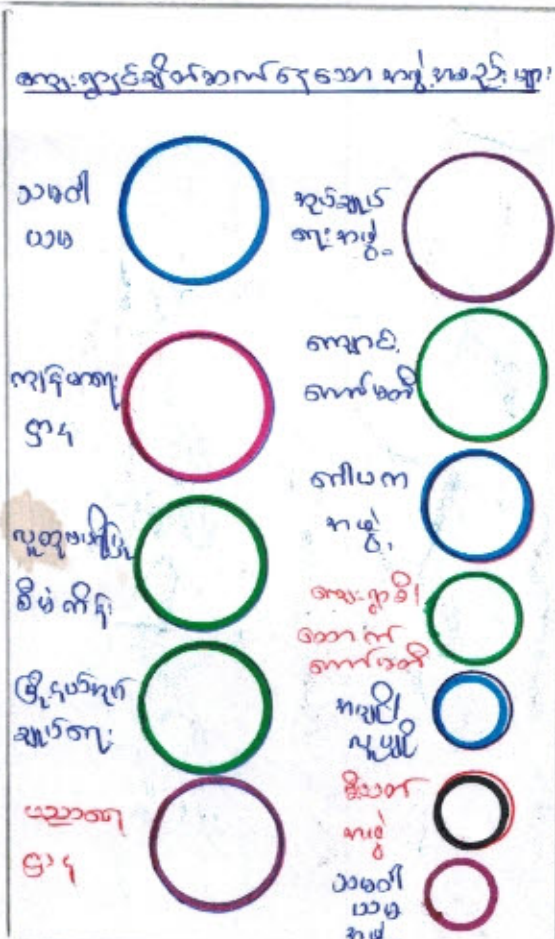 ကျေးရွာနှင့်ချိတ်ဆက်နေသော အဖွဲ့အစည်းများ
သမဝါ
ယမ
ကျန်းမာရေး
ဌာန
လူထုဗဟိုပြု
စီမံကိန်း
မြို့နယ်အုပ်
ချုပ်ရေး
ပညာရေး
ဌာန
အုပ်ချုပ်
ရေးအဖွဲ့
ကျောင်း
ကော်မတီ
ဂေါပက
အဖွဲ့
ကျေးရွာစီး
ထောက်
ကော်မတီ
အပျို
လူပျို
မီးသတ်
အဖွဲ့
သမဝါ
ယမ
အဖွဲ့